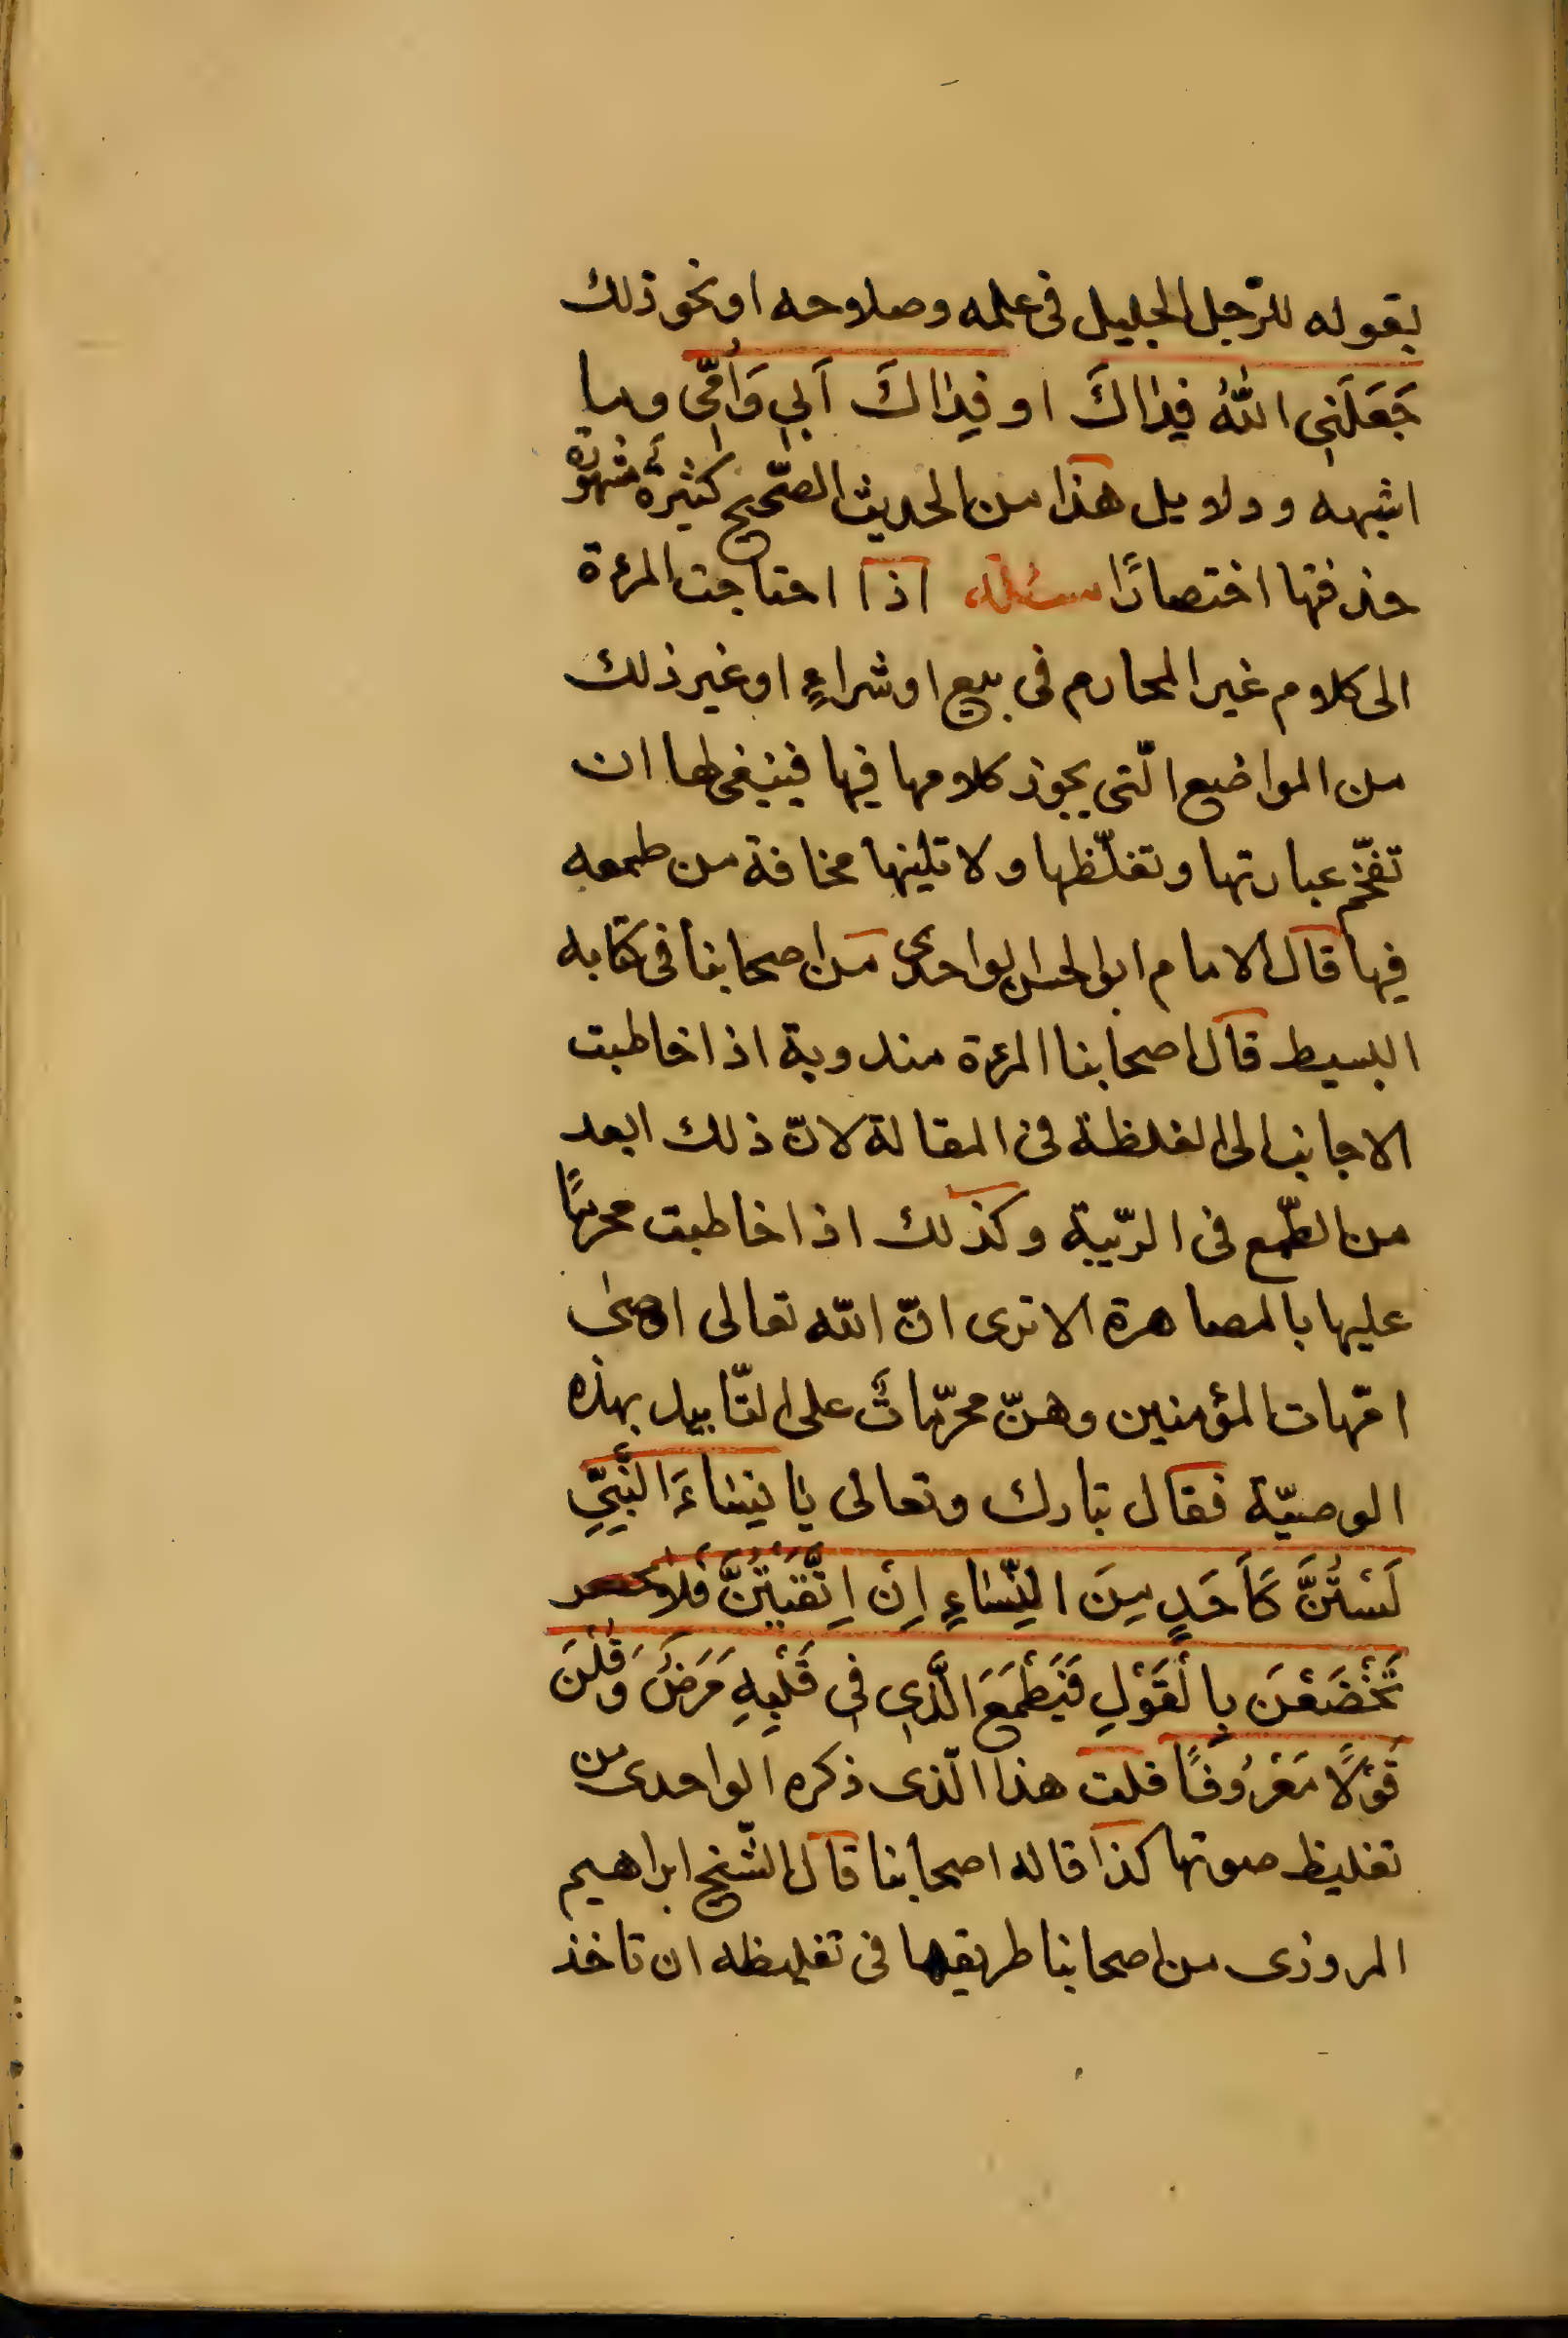 بقوله للرّجل الجليل فى علمه وصلاحه او نحو ذلك
جَعَلَنِي اللّٰهُ فِدٰاكَ او فِدٰاكَ اَبِي وَاُمِّى وما
اشبهه ودلايل هذا من الحديث الصّحيح كثيرة مشهورة
حذفتها اختصارًا مسئلة اذا احتاجت المرءة
الى كلام غير المحارم فى بيع او شراءٍ او غير ذلك
من المواضع الّتى يجوز كلامها فيها فينبغى لها ان
تفخّم عبارتها وتغلّظها ولا تلينها مخافة من طمعه
فيها قال الامام ابو الحسن الواحدى من اصحابنا فى كتابه
البسيط قال اصحابنا المرءة مندوبة اذا خاطبت
الاجانب الى الغلظة فى المقالة لانّ ذلك ابعد
من الطّمع فى الرّيبة وكذلك اذا خاطبت محرمًا
عليها بالمصاهرة الا ترى انّ اللّه تعالى اوصى
امّهات المؤمنين وهنّ محرّماتٌ على التّابيد بهذه
الوصيّة فقال تبارك وتعالى يٰا نِسٰاءَ النَّبِيِّ
لَسْتُنَّ كَاَحَدٍ مِنَ النِّسٰاءِ اِنْ اِتَّقَيْتُنَّ فَلاٰ
تَخْضَعْنَ بِالْقَوْلِ فَيَطْمَعَ الَّذِي فِى قَلْبِهِ مَرَضٌ وَقُلْنَ
قَوْلًا مَعْرُوفًا قلت هذا الّذى ذكره الواحدى من
تغليظ صوتها كذا قاله اصحابنا قال الشّيخ ابراهيم
المروزى من اصحابنا طريقها فى تغليظه ان تاخذ